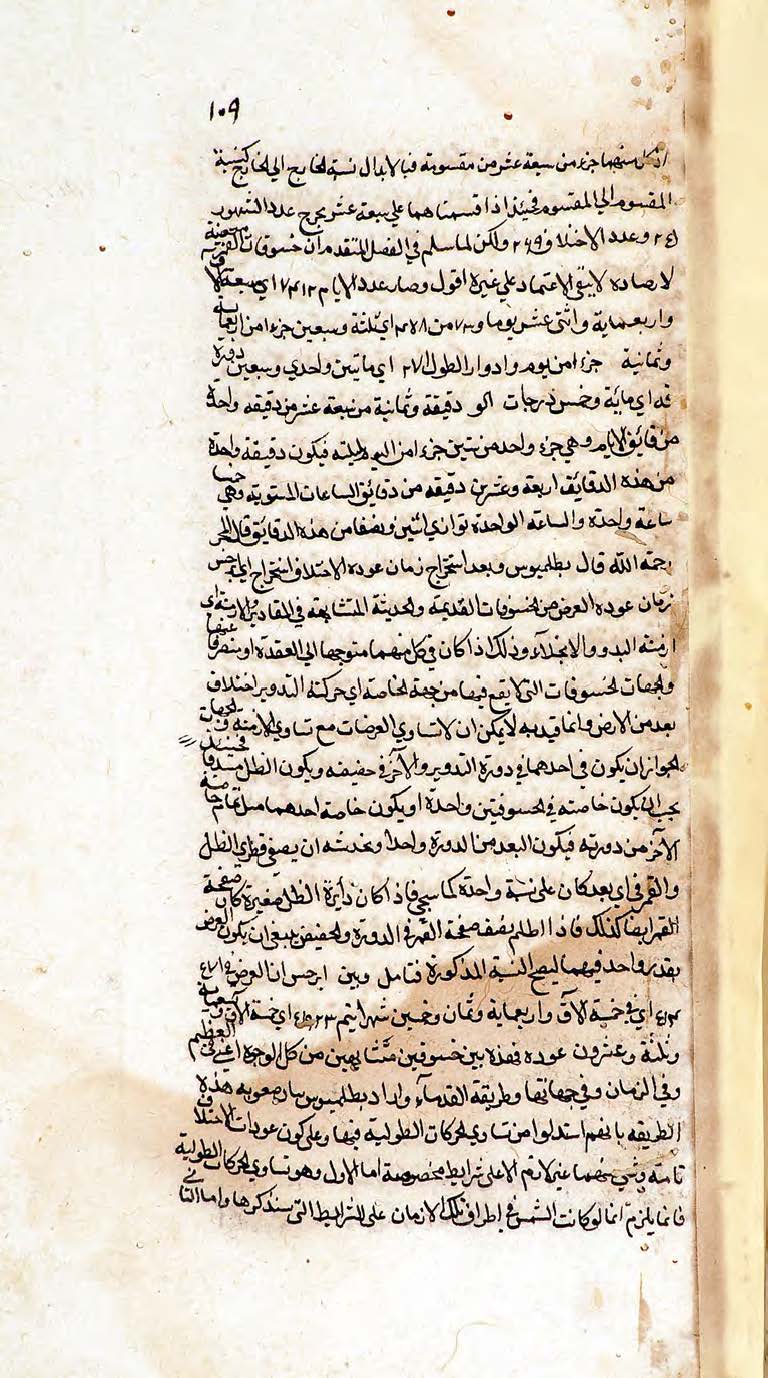 ١٠٩
اذ كل منهما جزء من سبعة عشر من مقسومه فبالابدال نسبة الخارج الي الخارج كنسبة
المقسوم الي المقسوم فحينئذ اذا قسمناهما علي سبعة عشر يخرج عدد الشهور
٢٥١ وعدد الاختلاف ٢٦٩ ولكن لما سلم في الفصل المتقدم ان خسوفات القمر
لارصاده لا يبقي الاعتماد علي غيره اقول وصار عدد الايام ٧٤١٢ اي سبعة الاف
واربعماية واثني عشر يوما و من اي ثلثة وسبعين جزءا من اربعماية
وثمانية جزءا من يوم وادوار الطول ٢٧١ اي ماتين واحدي وسبعين دورة
قه اي مائة وخمس درجات دقيقة وثمانية من سبعة عشر من دقيقه واحدة
من دقائق الايام وهي جزء واحد من ستين جزءا من اليوم بليلته فيكون دقيقة واحدة
من هذه الدقايق اربعة وعشرين دقيقه من دقايق الساعات المستوية وهي
ساعة واحدة والساعة الواحدة توازي اثنين ونصفا من هذه الدقايق قال
رحمة الله قال بطلميوس وبعد استخراج زمان عودة الاختلاف استخراج ابرخس
زمان عودة العرض من الخسوفات القديمة والحديثة المتشابهة في المقادير والازمنة اي
ازمنة البدو والانجلاء وذلك اذا كان في كل منهما متوجها الي العقدة او منصرفا عنها
والجهات الخسوفات التي لا يقع فيها من جهة الخاصة اي حركة التدوير اختلاف
بعد من الارض وانما قيد به لا يمكن ان لا تساوي العرضات مع تساوي الازمنة والجهات
لجواز ان يكون في احدهما في دورة التدوير والآخر في حضيضه ويكون الظل فحينئذ
يجب ان يكون خاصته في الخسوفين واحدة او يكون خاصة احدهما مثل تمام خاصة
الآخر من دورته فيكون البعد من الدورة واحدا ونحدسه ان نصفي قطري الظل
والقمر في اي بعد كان علي نسبة واحدة كما سيجي فاذا كان دايرة الظل صغيرة كان صفحة
القمر ايضا كذلك فاذا اظلم نصف صفحة القمر في الدورة والحضيض ينبغي ان يكون العرض
بقدر واحد فيهما ليصح النسبة المذكورة فتامل وبين ابرخس ان العرض في
اي في خمسة الاف واربعماية وثمان وخمسين شهرا يتم ٥٩٢٣ اي خمسة الاف وتسعماية
وثلثة وعشرون عودة فهذه بين خسوفين متشابهين من كل الوجوه اعني في العظم
وفي الزمان وفي جهاتها وطريقة القدماء واراد بطلميوس بيان صعوبة هذه
الطريقه بانهم استدلوا من تساوي الحركات الطولية فيها وعلي كون عودات الاختلاف
تامة وشي منهما غير لازم الا علي شرايط مخصوصة اما الاول وهو تساوي الحركات الطولية
فانما يلزم انما لو كانت الشمس في اطراف تلك الازمان علي الشرايط التي سنذكرها واما الثاني